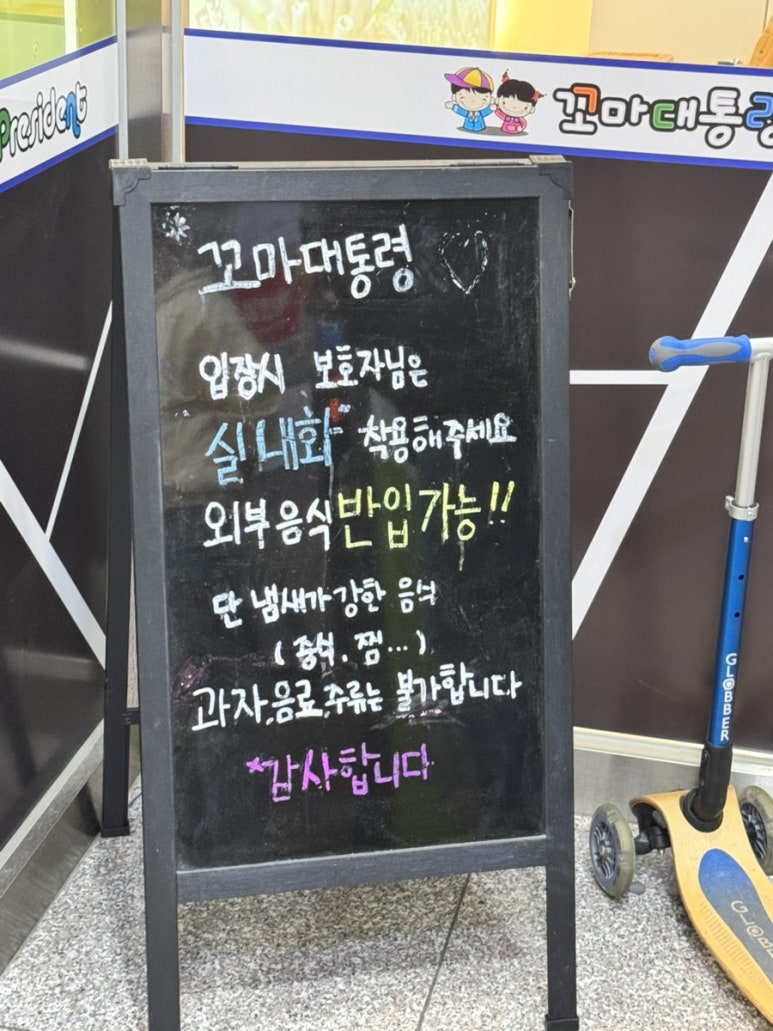 President
꼬마대통령
꼬마대통령
입장시 보호자님은
"실내화" 착용해주세요
외부음식 반입가능!!
단 냄새가 강한 음식
(중식, 찜...)
과자,음료,주류는 불가합니다
*감사합니다
GLOBBER
GLOB